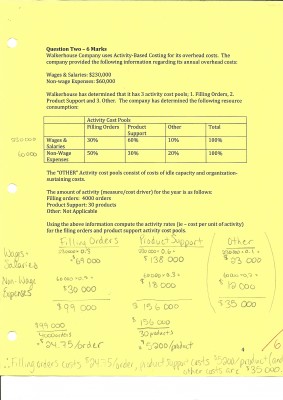 Question Two – 6 Marks
Walkerhouse Company uses Activity-Based Costing for its overhead costs. The
company provided the following information regarding its annual overhead costs:
Wages & Salaries: $230,000
Non-wage Expenses: $60,000
Walkerhouse has determined that it has 3 activity cost pools; 1. Filling Orders, 2.
Product Support and 3. Other. The company has determined the following resource
consumption:
Activity Cost Pools
Filling Orders Product Support Other Total
Wages & Salaries 30% 60% 10% 100%
Non-Wage Expenses 50% 30% 20% 100%
60000
The "OTHER" Activity cost pools consist of costs of idle capacity and organization-
sustaining costs.
The amount of activity (measure/cost driver) for the year is as follows:
Filling orders: 4000 orders
Product Support: 30 products
Other: Not Applicable
Using the above information compute the activity rates (ie – cost per unit of activity)
for the filling orders and product support activity cost pools.
Filling Orders Product Support Other
Wages + Salaries $69 000 $138 000 $23 000
Non wage Expenses $30 000 $18 000 $12 000
$99 000 $156 000 $35 000
$99 000 $156 000
4000 orders 30 products
$24.75/order $5200/product
6
∴ Filling orders costs $24.75/order, product support costs $5200/product and
other costs are $35 000.